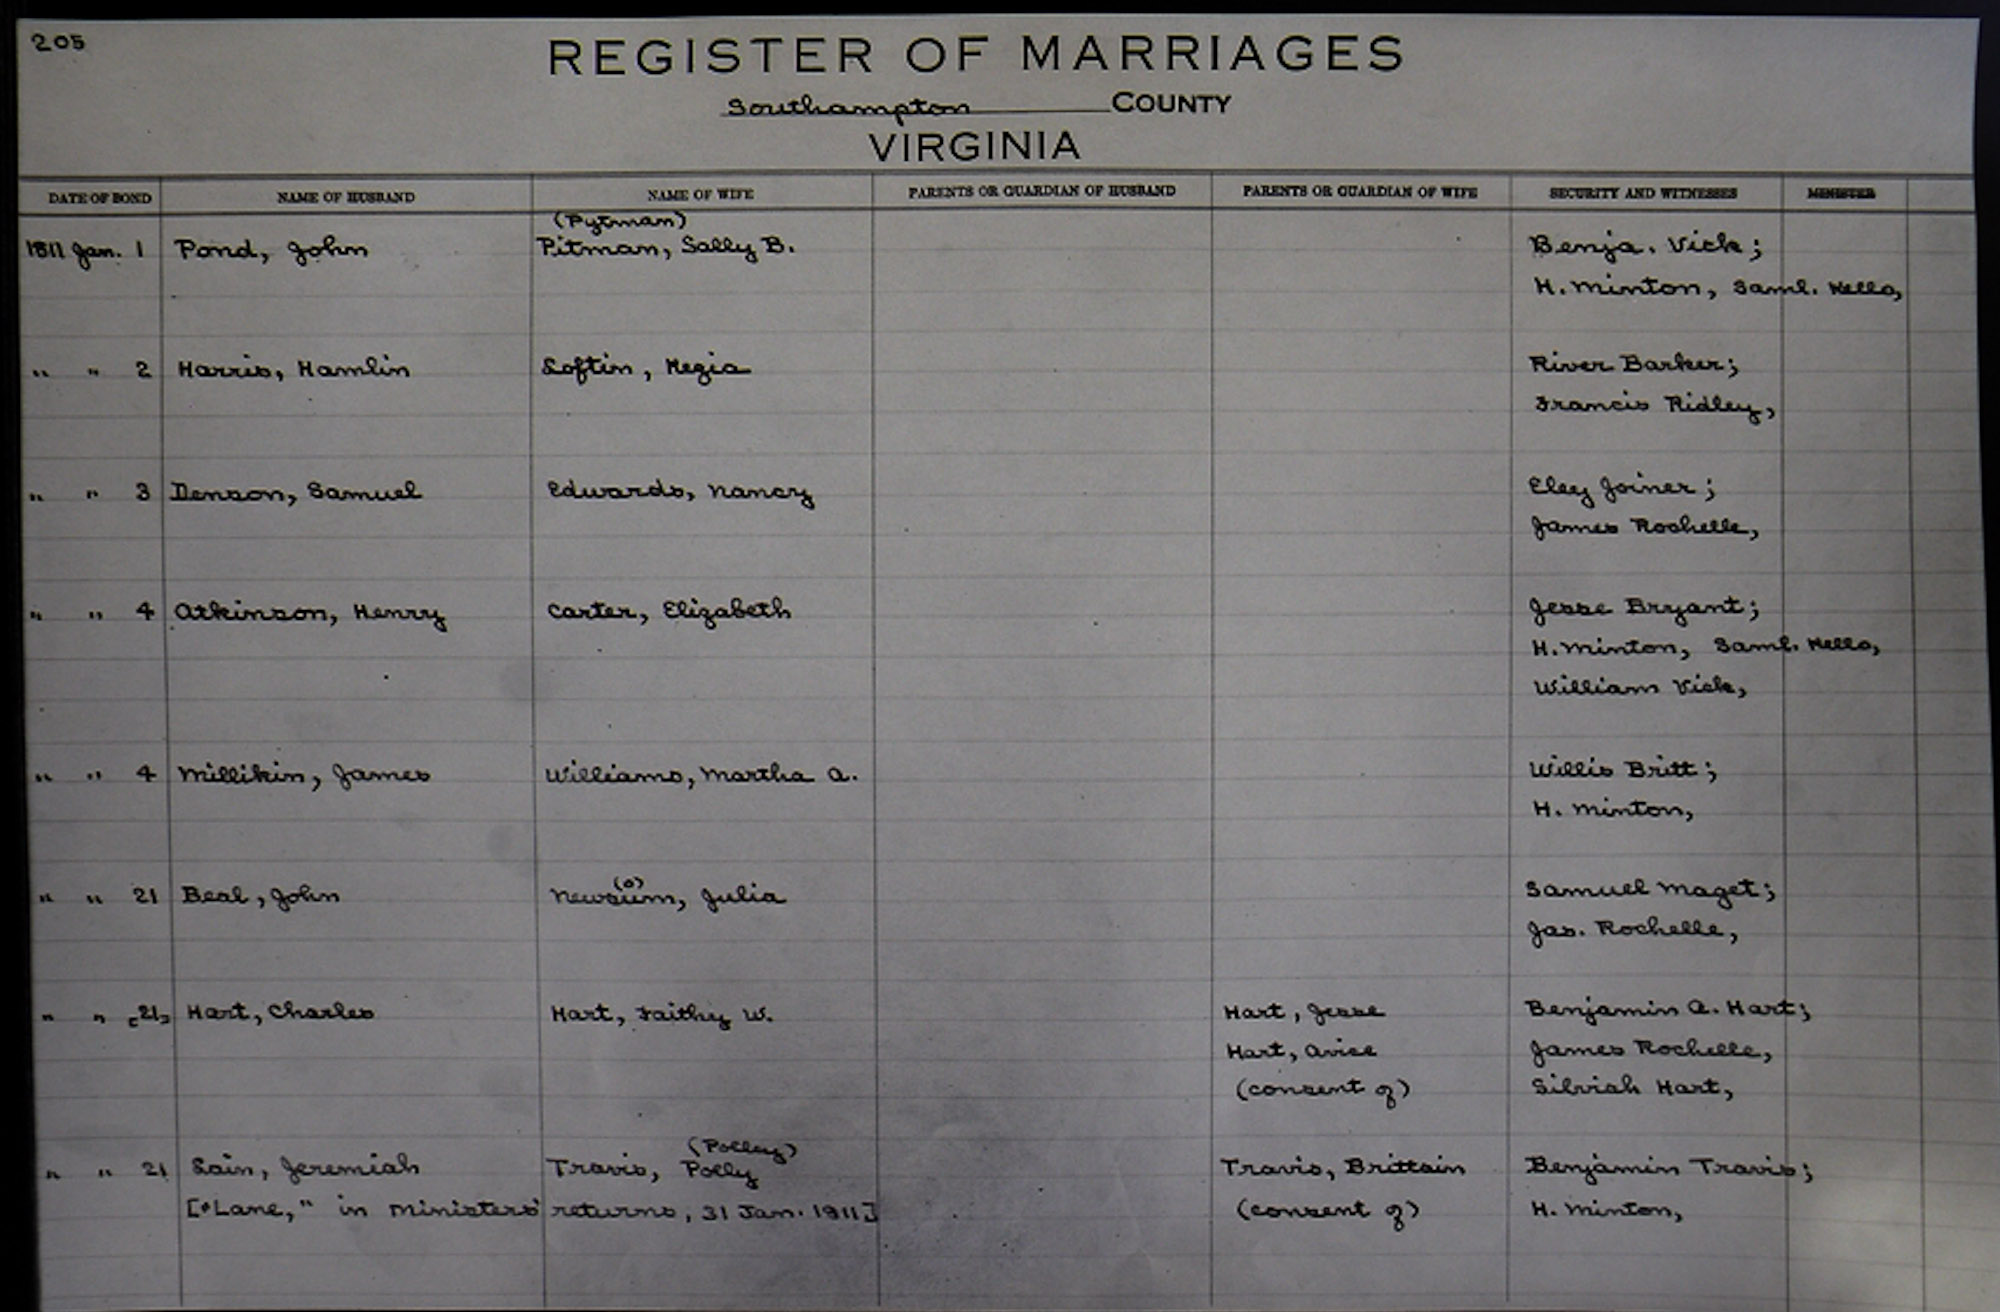 205
REGISTER OF MARRIAGES
Southampton COUNTY
VIRGINIA
DATE OF BOND NAME OF HUSBAND NAME OF WIFE PARENTS OR GUARDIAN OF HUSBAND PARENTS OR GUARDIAN OF WIFE SECURITY AND WITNESSES MINISTER
(Pytman)
1811 Jan. 1 Pond, John Pitman, Sally B. Benja. Vick;
H. Minton, Saml. Kello,
" " 2 Harris, Hamlin Loftin, Kezia River Barker;
Francis Ridley,
" " 3 Denson, Samuel Edwards, Nancy Eley Joiner;
James Rochelle,
" " 4 Atkinson, Henry Carter, Elizabeth Jesse Bryant;
H. Minton, Saml. Kello,
William Vick,
" " 4 Millikin, James Williams, Martha A. Willis Britt;
H. Minton,
(o)
" " 21 Beal, John Newsum, Julia Samuel Maget;
Jas. Rochelle,
" " [21] Hart, Charles Hart, Faithy W. Hart, Jesse Benjamin A. Hart;
Hart, Avice James Rochelle,
(consent of) Silviah Hart,
(Polley)
" " 21 Lain, Jeremiah Travis, Polly Travis, Brittain Benjamin Travis;
["Lane," in ministers' returns, 31 Jan. 1911] (consent of) H. Minton,